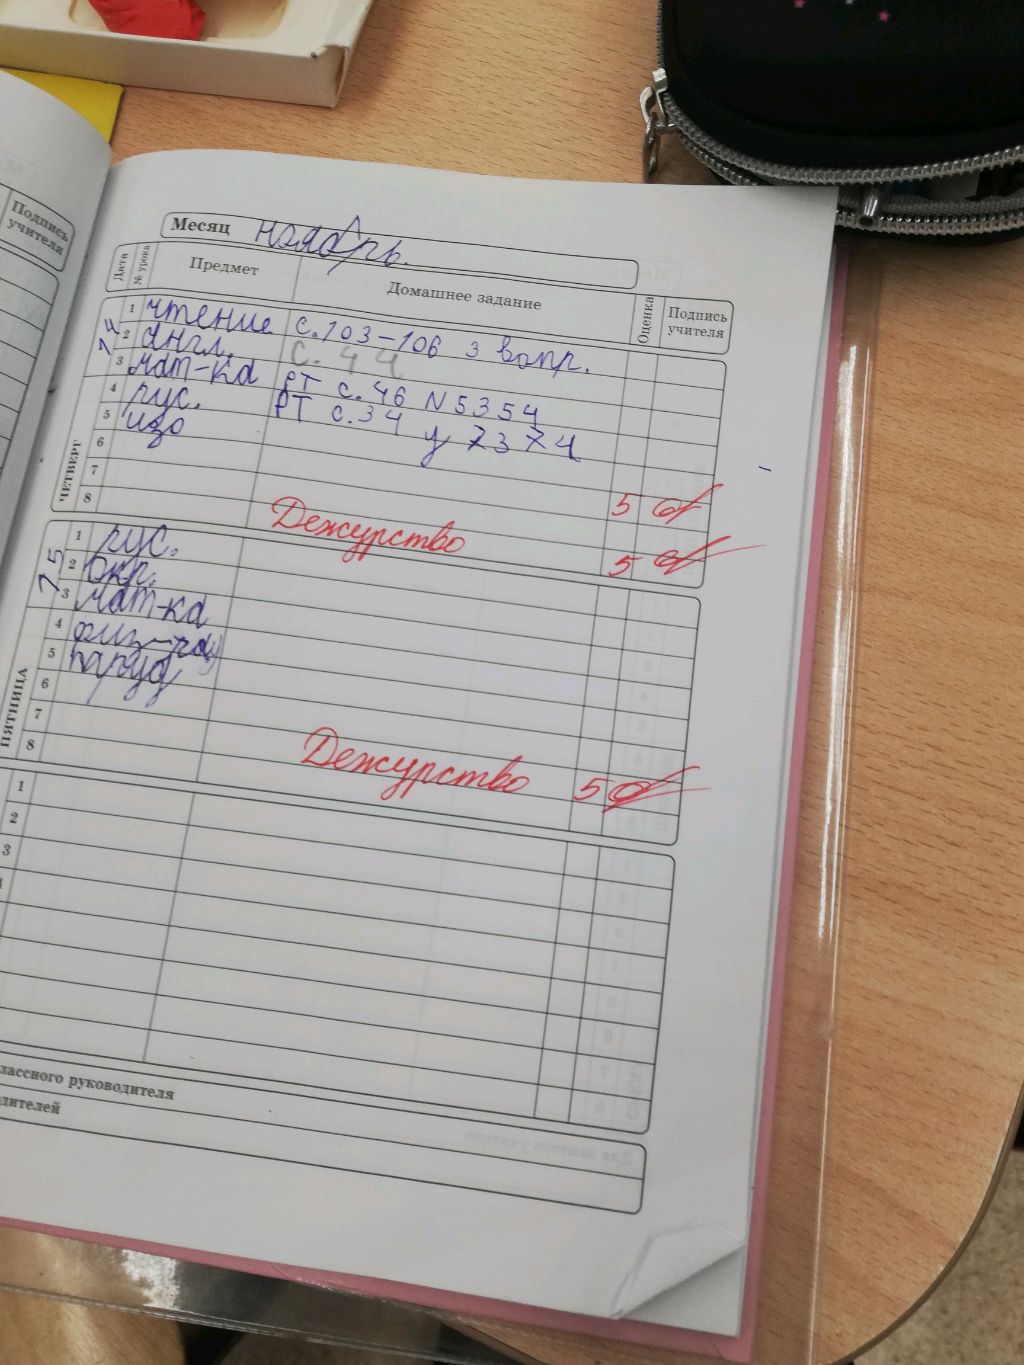 Подпись
учителя
Месяц ноябрь.
Дата № урока Предмет Домашнее задание Оценка Подпись учителя
14
ЧЕТВЕРГ
1 чтение с.103-106 3 вопр.
2 англ. с. 44
3 мат-ка РТ с.46 N5354
4 рус. РТ с.34 у 7374
5 изо
6
7 5
8 Дежурство 5
15
ПЯТНИЦА
1 рус.
2 окр.
3 мат-ка
4
5
6
7
8 Дежурство 5
1
2
3
лассного руководителя
дителей